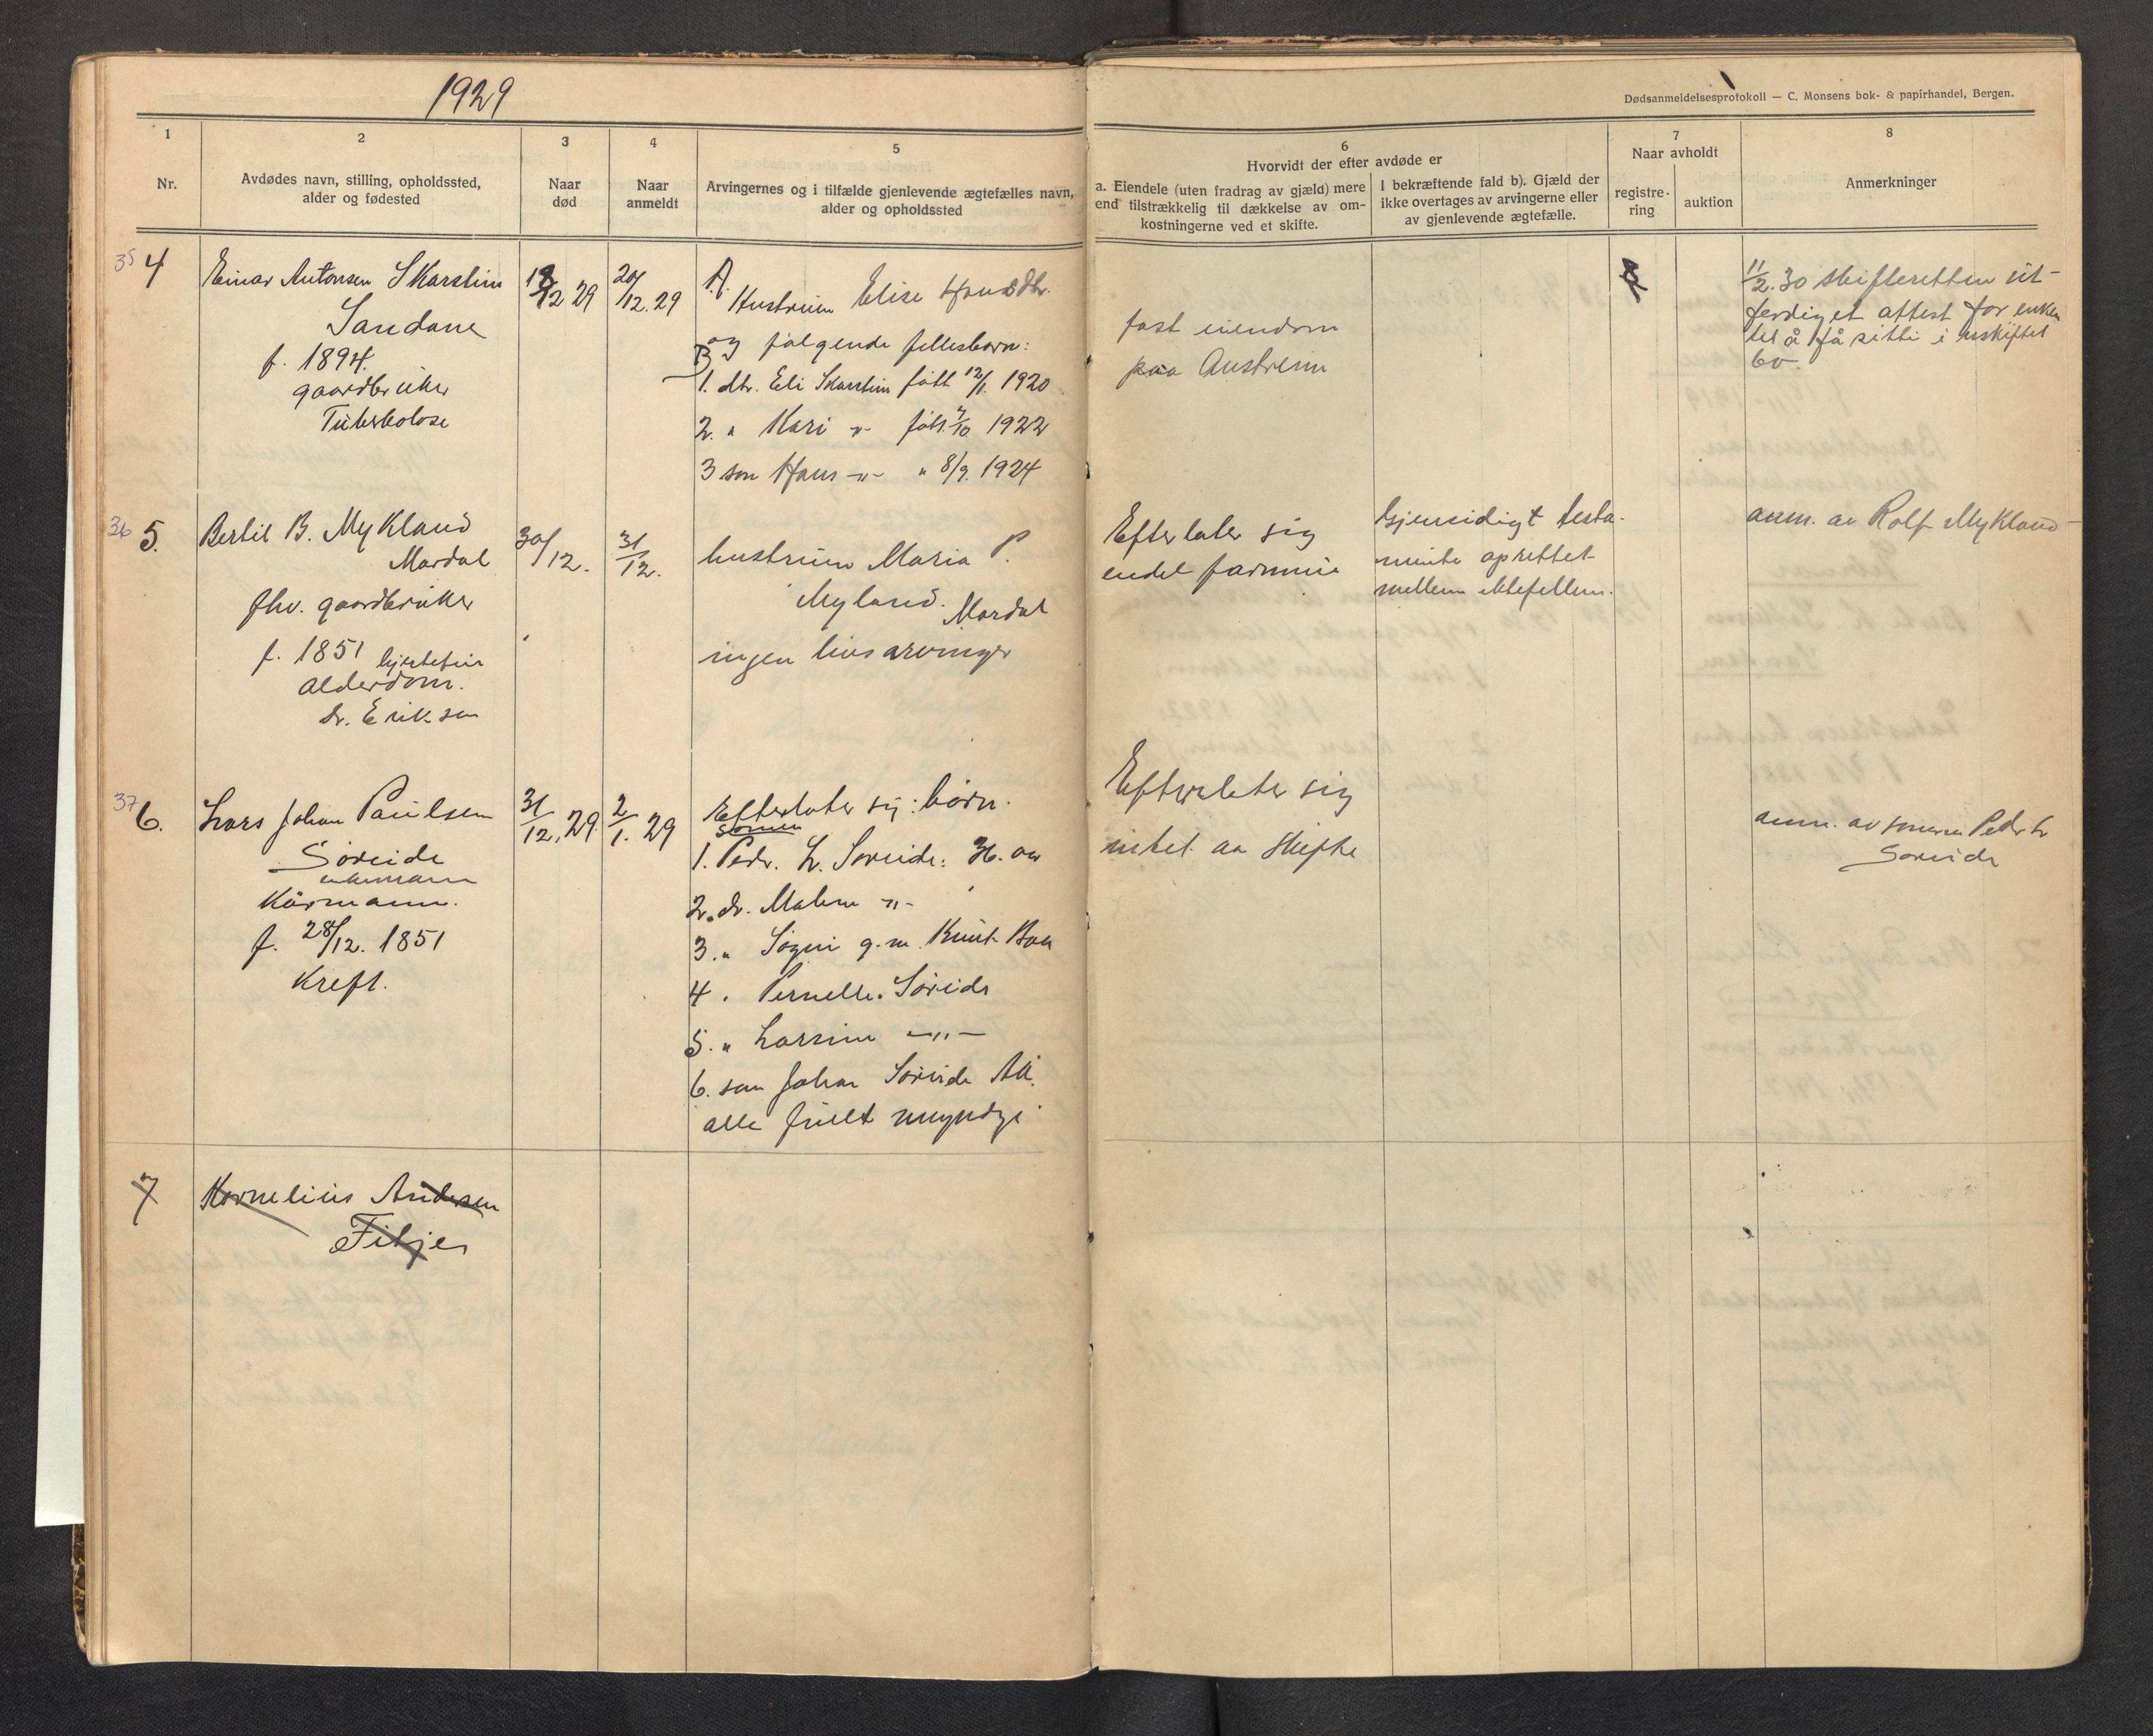 1929
Dødsanmeldelsesprotokoll — C. Monsens bok- & papirhandel, Bergen.
1
Nr.
2
Avdødes navn, stilling, opholdssted,
alder og fødested
3
Naar
død
4
Naar
anmeldt
5
Arvingernes og i tilfælde gjenlevende ægtefælles navn,
alder og opholdssted
6
Hvorvidt der efter avdøde er
a. Eiendele (uten fradrag av gjæld) mere
end tilstrækkelig til dækkelse av om-
kostningerne ved et skifte.
I bekræftende fald b). Gjæld der
ikke overtages av arvingerne eller
av gjenlevende ægtefælle.
7
Naar avholdt
registre-
ring
auktion
8
Anmerkninger
35 4
Einar Antonsen Skarstein
Sandane
f. 1894.
gaardbruker
Tuberkolose
18/12 29
20/12. 29
A.
Hustruen Elise Hansdtr.
og følgende fellesbarn:
B
1. dtr. Eli Skarstein født 12/1. 1920
2. " Kari -"- født 7/10 1922
3 søn Hans -"- " 8/9. 1924
fast eiendom
paa Austreim
11/2.30 skifteretten ut-
ferdiget attest for enken
til å få sitte i uskiftet
bo.
36 5.
Bertil B. Mykland
Mardal
fhv. gaardbruker
f. 1851 hjertefeil
alderdom.
dr. Eriksen
30/12.
31/12.
hustruen Maria P.
Myland. Mardal
ingen livsarvinger
Efterlater sig
endel formue
Gjensidigt testa-
mente oprettet
mellem ektefellene.
anm. av Rolf Mykland
37 6.
Lars Johan Paulsen
Søreide
enkemann
Kårmann.
f. 28/12. 1851
Kreft.
31/12. 29
2/1. 29
Efterlater sig: børn.
sønnen
1. Peder. L. Søreide: 36. år
2. dr. Malene -"-
3. " Søgni g.m. Knut
4 . Pernelle. Søreide
5. " Larsine -"-
6. søn Johan Søreide
alle fullt myndige
Efterlater sig
intet å skifte
anm. av sønnen Peder L
Søreide
7
Kornelius Andersen
Fitjer